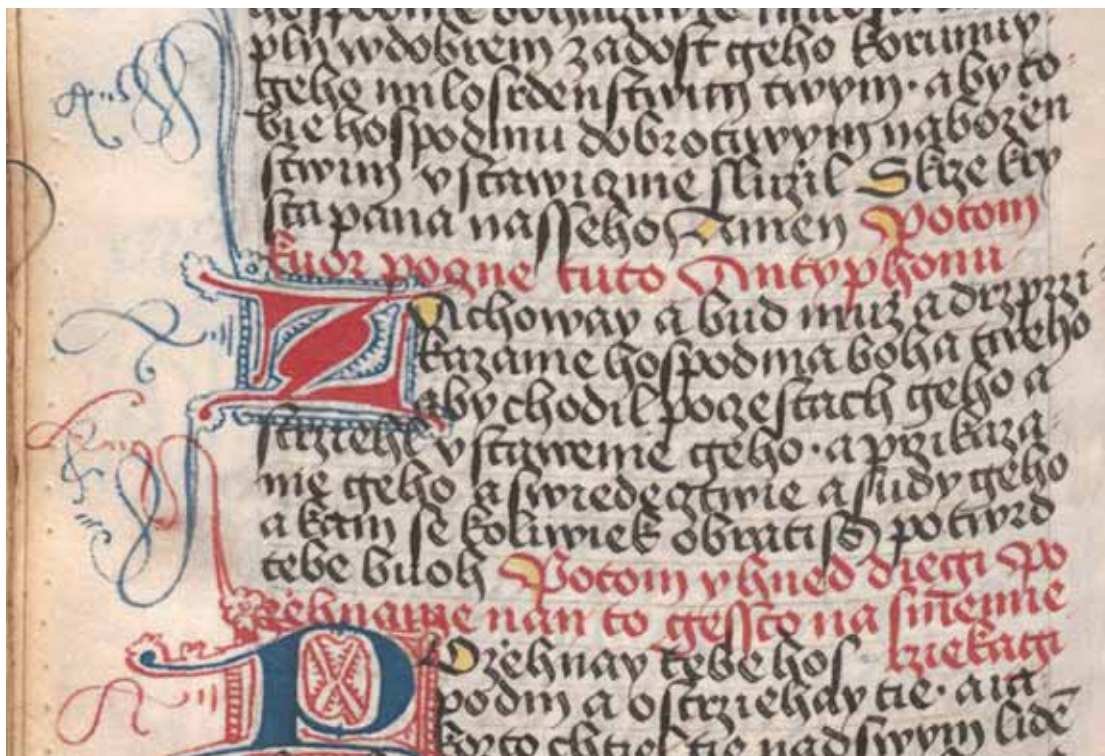 plny w dobrem zadost geho korunuy
geho milosrdenstwim twym · aby to-
bie hospodinu dobrotiwym nabozen
stwim vstawicznie sluzil Skrze kry
sta pana nasseho Amen Potom
kuor pogne tuto Antyphonu
Zachoway a bud muz a drz przi-
kazanie hospodina boha tweho
aby chodil po czestach geho a
strziehl vstawenie geho · a przikaza-
nie geho a swiedecztwie a sudy geho
a kam se koliwiek obratiss potwrd
tebe buoh Potom yhned diegi Po
zehnanie nan to gessto na snieme
rziekagi
Pozehnay tebe hos
podin a ostrziehay tie · a ia
kozto chtiel tie nad swym lidem